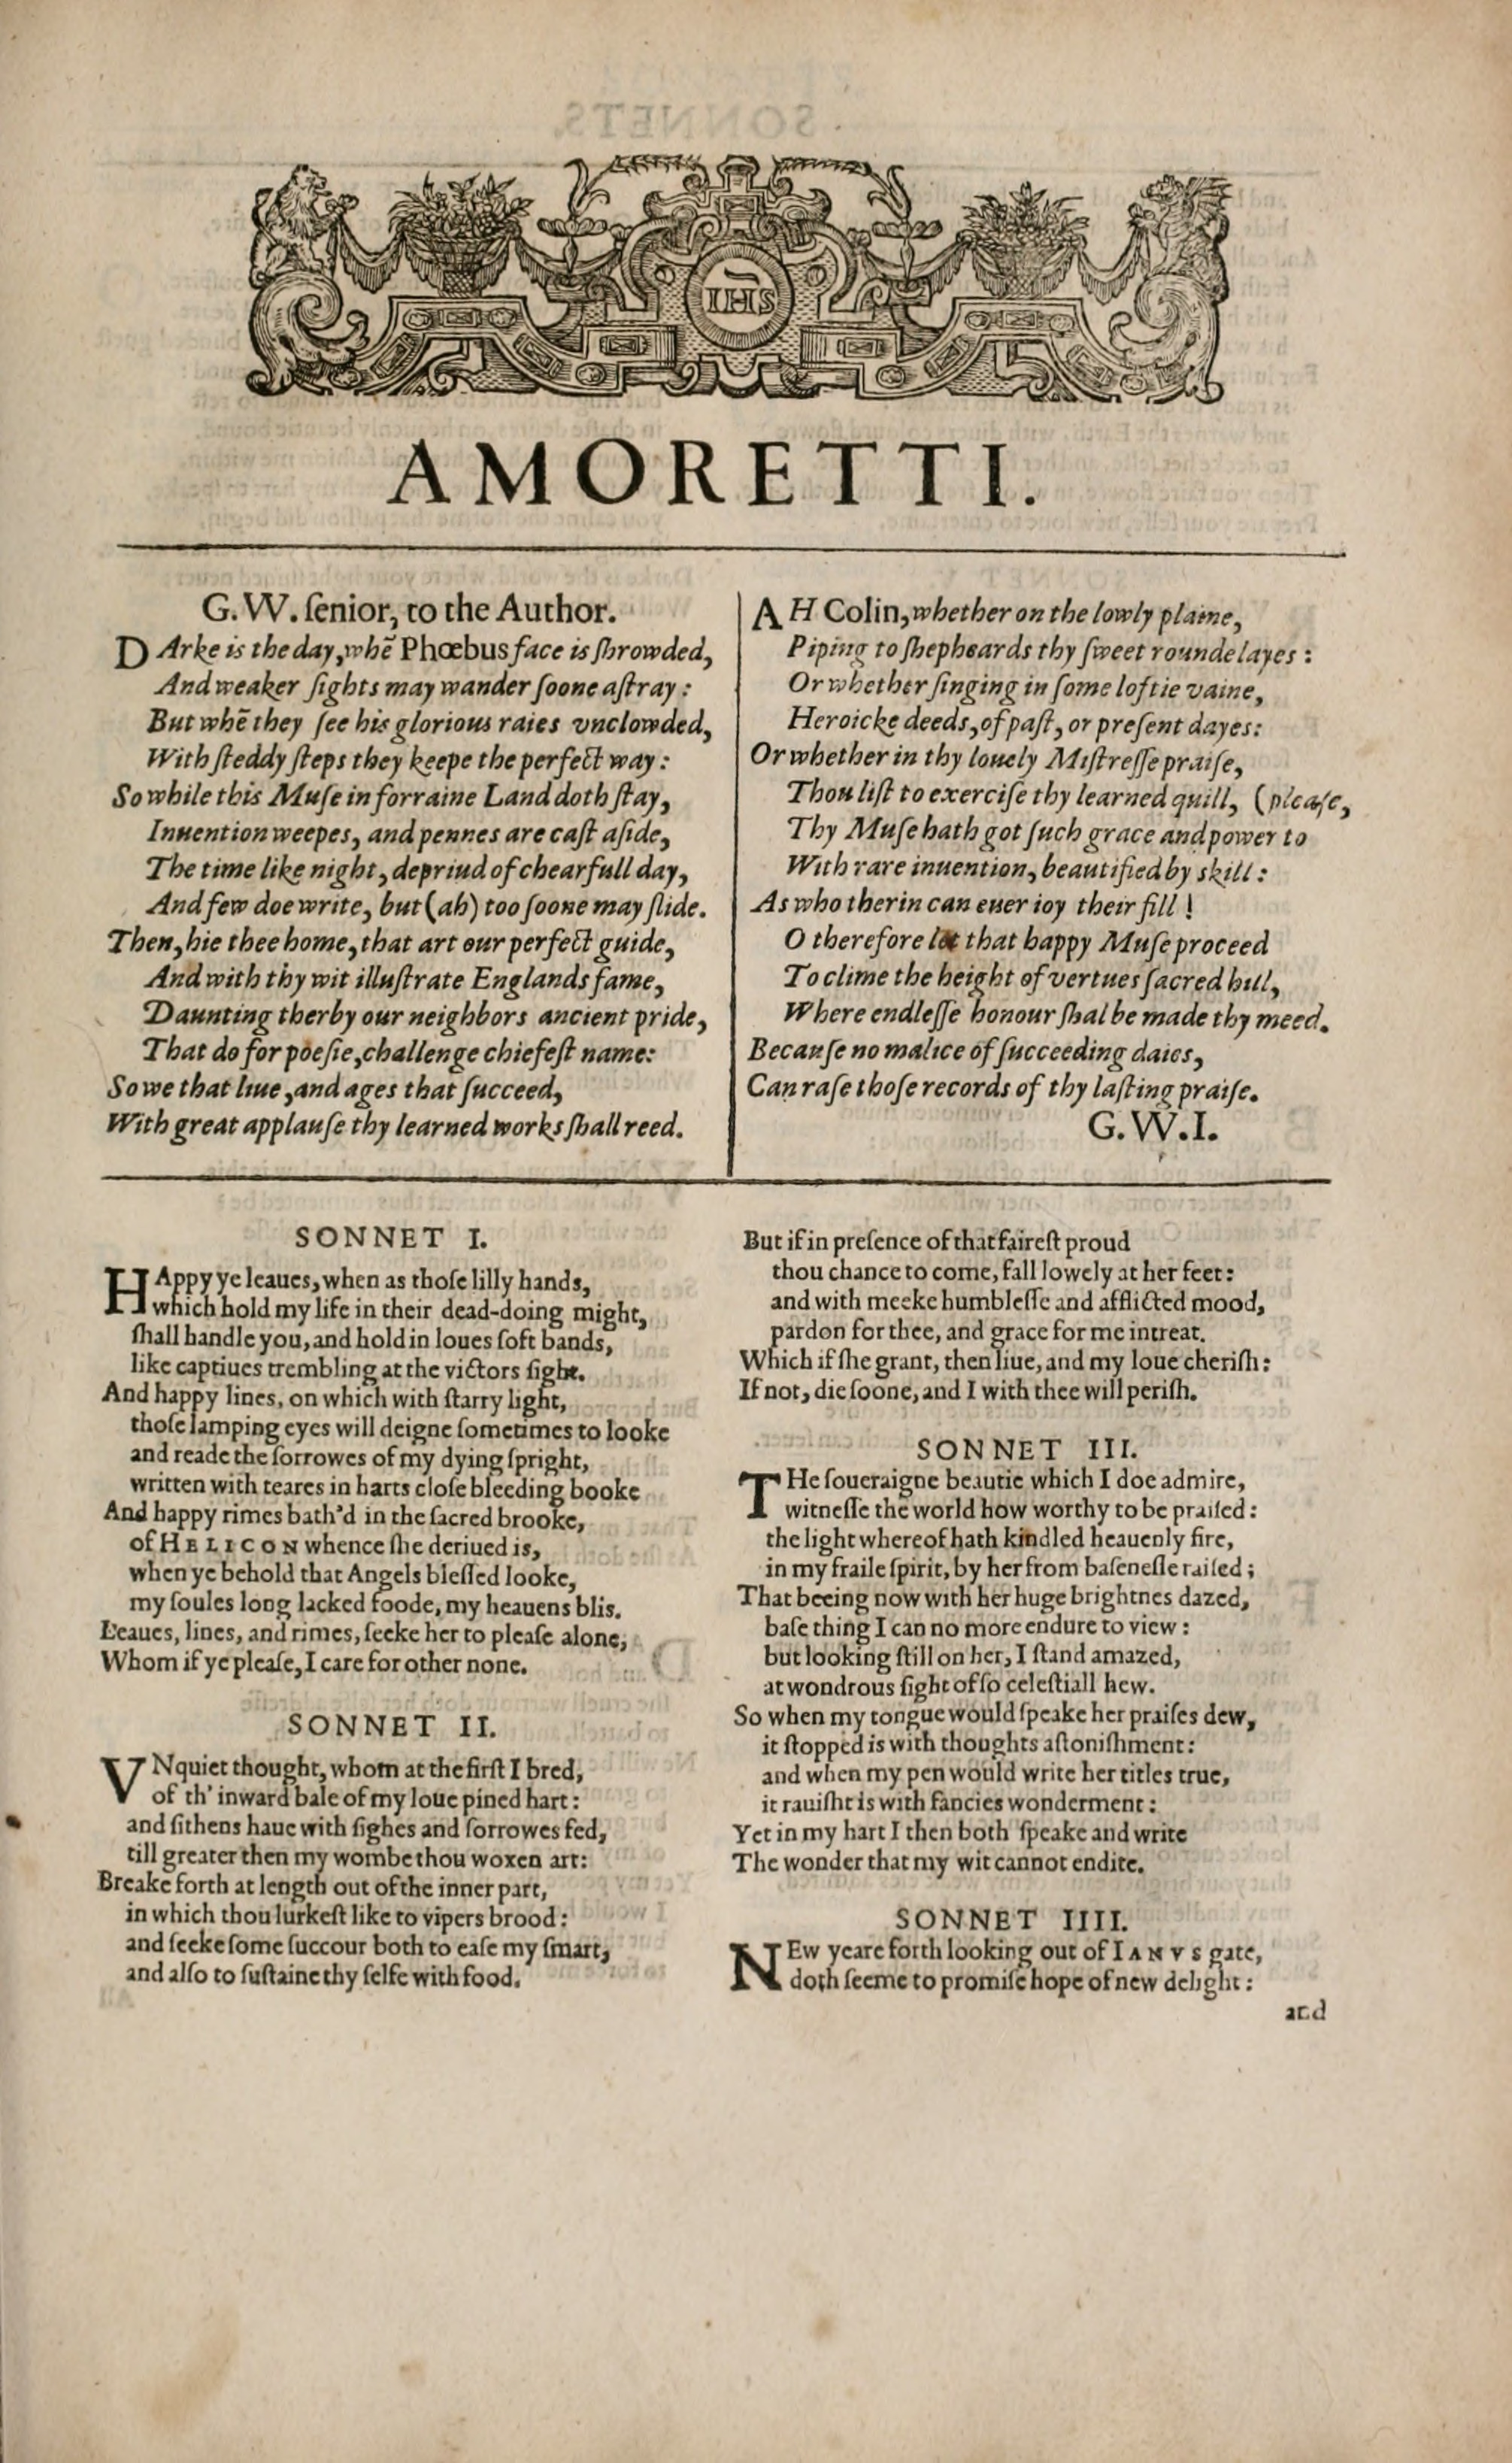 IHS
AMORETTI.
G. W. ſenior, to the Author.
DArke is the day, whẽ Phœbus face is ſhrowded,
And weaker ſights may wander ſoone aſtray:
But whẽ they ſee his glorious raies vnclowded,
With ſteddy ſteps they keepe the perfect way:
So while this Muſe in forraine Land doth ſtay,
Inuention weepes, and pennes are caſt aſide,
The time like night, depriud of chearfull day,
And few doe write, but (ah) too ſoone may ſlide.
Then, hie thee home, that art our perfect guide,
And with thy wit illuſtrate Englands fame,
Daunting therby our neighbors ancient pride,
That do for poeſie, challenge chiefeſt name:
So we that liue, and ages that ſucceed,
With great applauſe thy learned works ſhall reed.
AH Colin, whether on the lowly plaine,
Piping to ſhepheards thy ſweet roundelayes:
Or whether ſinging in ſome loftie vaine,
Heroicke deeds, of paſt, or preſent dayes:
Or whether in thy louely Miſtreſſe praiſe,
Thou liſt to exerciſe thy learned quill, (pleaſe,
Thy Muſe hath got ſuch grace and power to
With rare inuention, beautified by skill:
As who therin can euer ioy their fill!
O therefore let that happy Muſe proceed
To clime the height of vertues ſacred hill,
Where endleſſe honour ſhal be made thy meed.
Becauſe no malice of ſucceeding daies,
Can raſe thoſe records of thy laſting praiſe.
G. W. I.
SONNET I.
HAppy ye leaues, when as thoſe lilly hands,
which hold my life in their dead-doing might,
ſhall handle you, and hold in loues ſoft bands,
like captiues trembling at the victors ſight.
And happy lines, on which with ſtarry light,
thoſe lamping eyes will deigne ſometimes to looke
and reade the ſorrowes of my dying ſpright,
written with teares in harts cloſe bleeding booke
And happy rimes bath'd in the ſacred brooke,
of HELICON whence ſhe deriued is,
when ye behold that Angels bleſſed looke,
my ſoules long lacked foode, my heauens blis.
Leaues, lines, and rimes, ſeeke her to pleaſe alone,
Whom if ye pleaſe, I care for other none.
SONNET II.
VNquiet thought, whom at the firſt I bred,
of th' inward bale of my loue pined hart:
and ſithens haue with ſighes and ſorrowes fed,
till greater then my wombe thou woxen art:
Breake forth at length out of the inner part,
in which thou lurkeſt like to vipers brood:
and ſeeke ſome ſuccour both to eaſe my ſmart,
and alſo to ſuſtaine thy ſelfe with food.
But if in preſence of that faireſt proud
thou chance to come, fall lowely at her feet:
and with meeke humbleſſe and afflicted mood,
pardon for thee, and grace for me intreat.
Which if ſhe grant, then liue, and my loue cheriſh:
If not, die ſoone, and I with thee will periſh.
SONNET III.
THe ſoueraigne beautie which I doe admire,
witneſſe the world how worthy to be praiſed:
the light whereof hath kindled heauenly fire,
in my fraile ſpirit, by her from baſeneſſe raiſed;
That beeing now with her huge brightnes dazed,
baſe thing I can no more endure to view:
but looking ſtill on her, I ſtand amazed,
at wondrous ſight of ſo celeſtiall hew.
So when my tongue would ſpeake her praiſes dew,
it ſtopped is with thoughts aſtoniſhment:
and when my pen would write her titles true,
it rauiſht is with fancies wonderment:
Yet in my hart I then both ſpeake and write
The wonder that my wit cannot endite.
SONNET IIII.
NEw yeare forth looking out of IANVS gate,
doth ſeeme to promiſe hope of new delight:
and